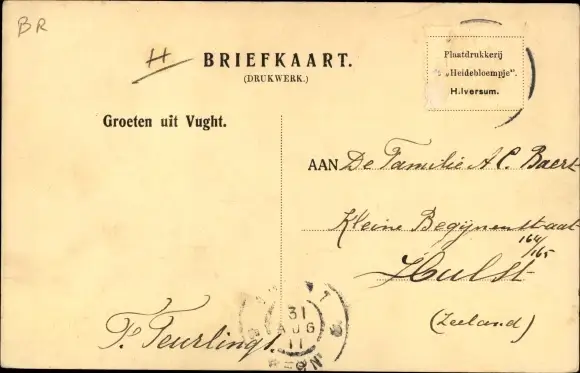 BR
H
BRIEFKAART.
(DRUKWERK.)
Plaatdrukkerij
"Heidebloempje".
H.lversum.
Groeten uit Vught.
AAN De Familie A C. Baert
Kleine Begijnenstraat
164/165
Hulst
(Zeeland)
F. Teurlings
31
AUG
11